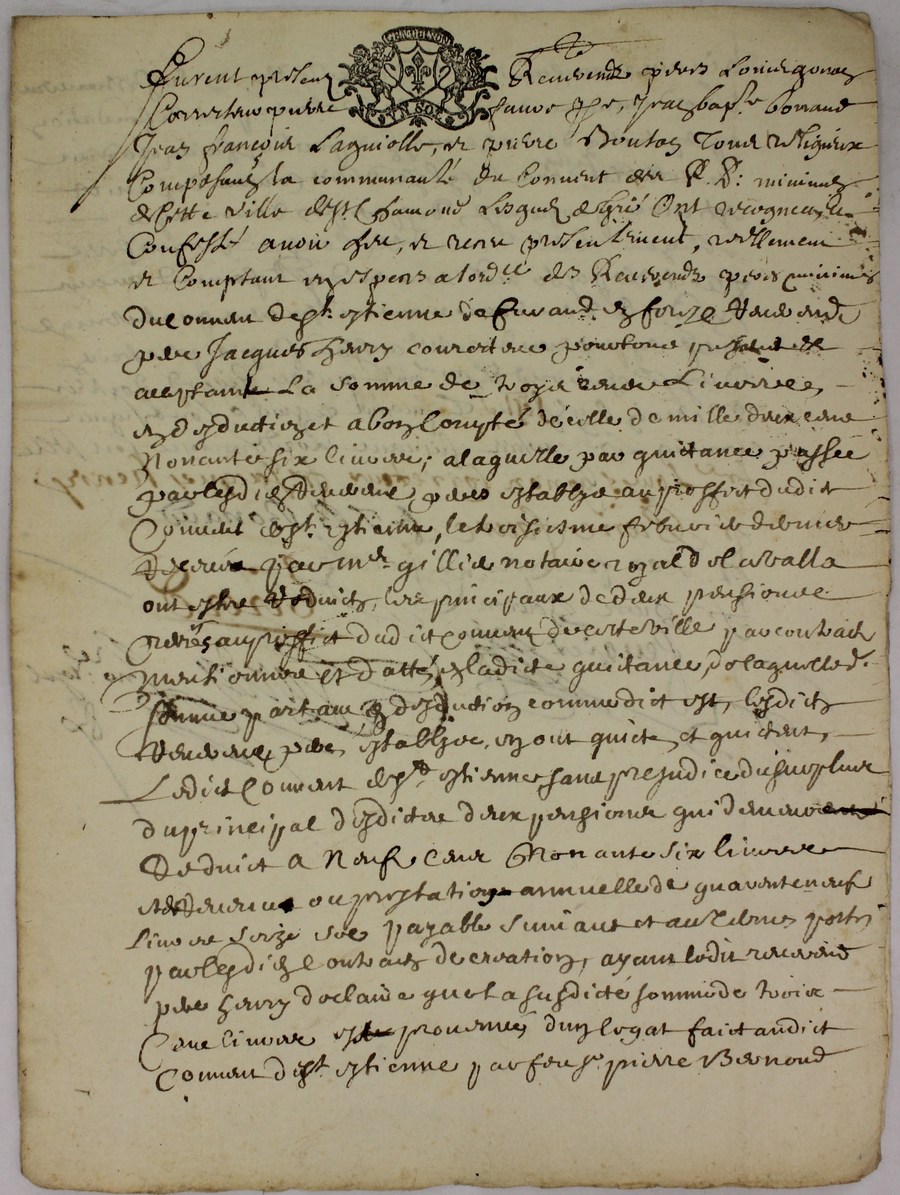 Furent presens Reverends peres
Correcteur pierre faure Jean bap.te bonnand
Jean françois Laguiolle, et pierre Boutas Tous religieux
Composans la communauté du Convent des R. P: minimes
de cette ville de St Chamond Lesquels de gré Ont recogneu et
Confessé avoir heu, et receu presentement, reellement
et Comptant des Reverends peres minimes
du Convent de St estienne de furand en forez Reverend
pere Jacques henry correcteur
acceptant La somme de trois cents Livres
en deduction et a bon Compte de celle de mille deux cens
Nonante six livres, a laquelle par quittance passée
par lesdicts Reverends peres establys au proffict dudict
Convent de St estienne, le troisiesme febvrier dernier
receue par me gillier notaire royal de lavalla
ont esté reduicts, les principaux de deux pensions
Creés au proffict dudict couvent de cette ville par contract
mentionnés et dattés en ladicte quittance, de laquelle d.
somme partant en deduction comme dict est, lesdicts
Reverends peres establys, en ont quicté, et quictent,
Ledict Convent de St estienne sans prejudice du surplus
du principal desdictes deux pensions qui demeurent
Reduict a Neuf cens Nonante six livres
et a Revenu ou prestation annuelle de quarante neuf
Livres seize sols payable suivant et aux termes portés
par lesdicts Contracts de creation, ayant ledit reverend
pere henry declairé que la susdicte somme de trois
Cens livres est provenue d'un legat faict audict
Convent de St estienne par feu sr pierre Bernoud